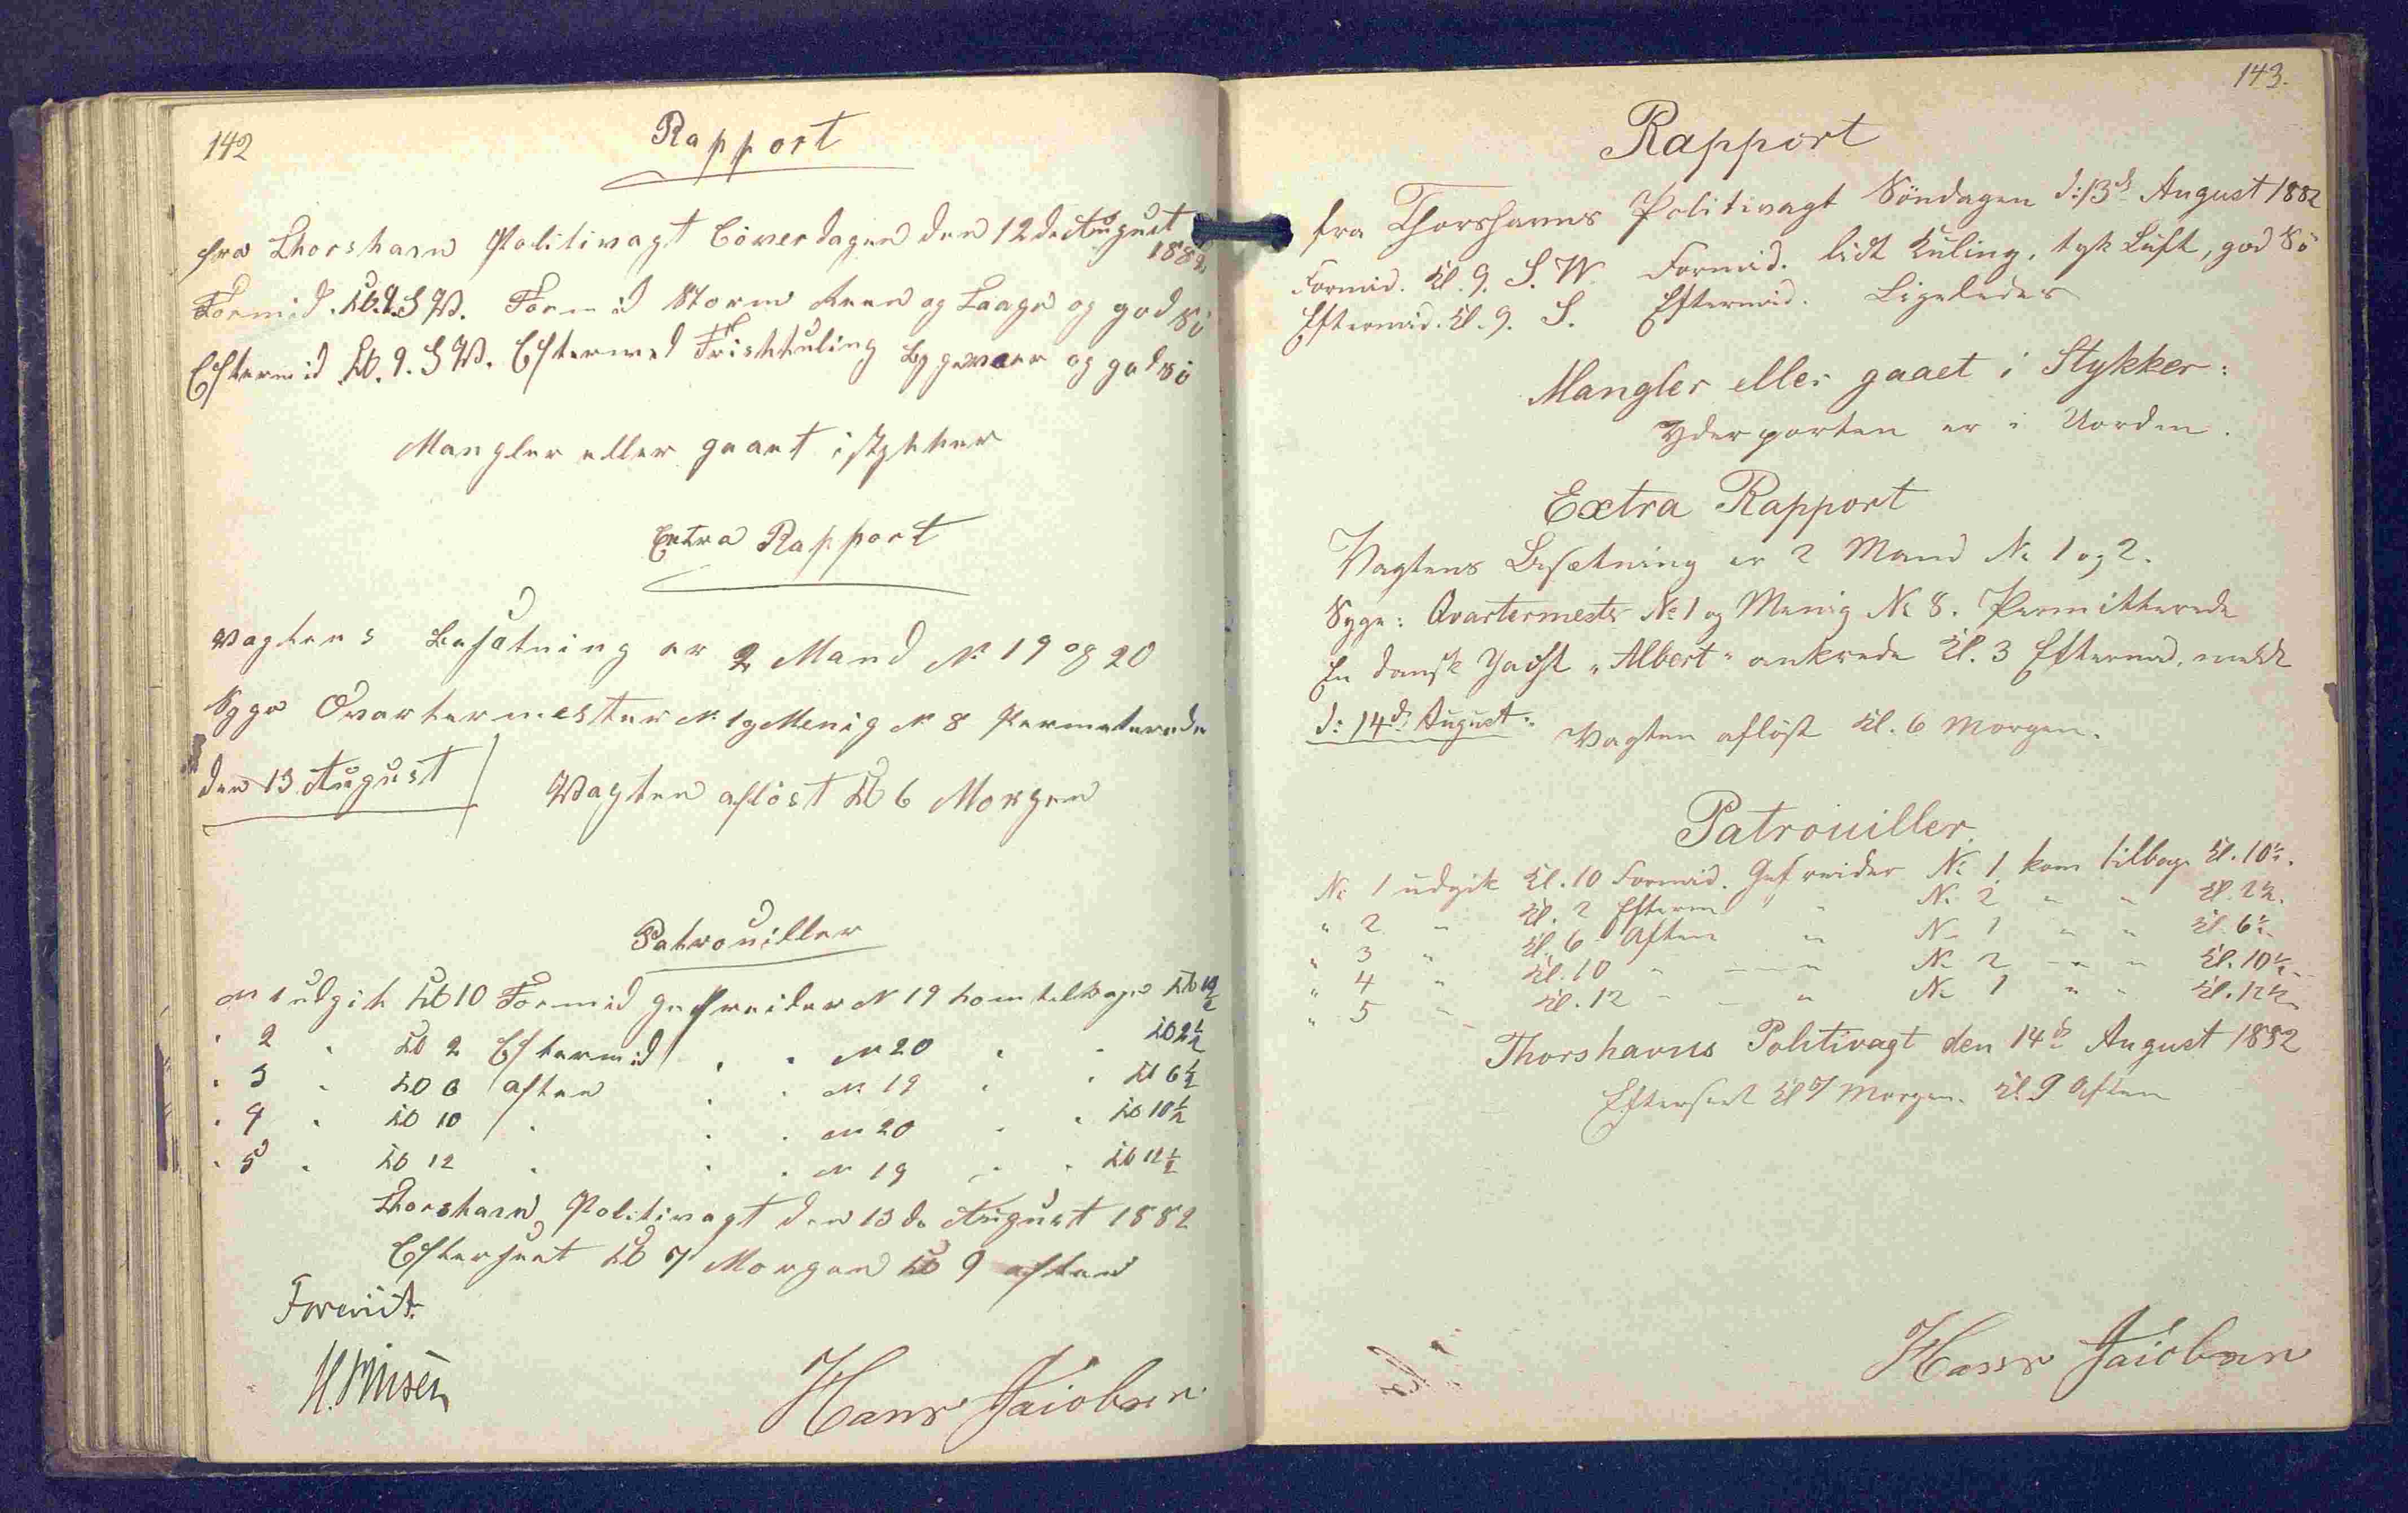 142
Rapport
fra Thorshavn Politivagt Löverdagen den 12 de August
1882
Formid. Kl. 9. S W. Formid Storm Reen og Taage og god Sö
Eftermid Kl. 9. S W. Eftermed Friskkuling Bygeveer og god Sö
Mangler eller gaaet istykker
Extra Rapport
Vagtens Besætning er 2 Mand N. 19 og 20
Syge Qvartermester N. 1 og Menig N. 8 Permeterede
den 13 August Vagten aflöst Kl 6 Morgen
Patrouiller
N 1 udgik Kl 10 Formid gefreider N 19 kom tilbage Kl 10 1/2
" 2 " Kl 2 Eftermid " " N 20 " " Kl 2 1/2
" 3 " Kl 6 Aften " " N 19 " " Kl 6 1/2
" 4 " Kl 10 " " " N 20 " " Kl 10 1/2
" 5 " Kl 12 " " " N 19 " " Kl 12 1/2
Thorshavn Politivagt den 13 de August 1882
Efterseet Kl 7 Morgen Kl 9 aften
Forevist
Hans Jaicobsen
143.
Rapport
fra Thorshavns Politivagt Söndagen d: 13d August 1882
Formid. Kl. 9. S. W. Formid. lidt Kuling, tyk Luft, god Sö
Eftermid. Kl. 9. S. Eftermid. Ligeledes
Mangler eller gaaet i Stykker:
Yderporten er i Uorden.
Extra Rapport
Vagtens Besætning er 2 Mand No 1 og 2.
Syge: Qvartermester No 1 og Menig No 8. Permitterede
En dansk Jacht "Albert" ankrede Kl. 3 Eftermid. meldt
d: 14d August: Vagten aflöst Kl. 6 Morgen.
Patrouiller
No 1 udgik Kl. 10 Formid. Gefreider No 1 kom tilbage Kl. 10 1/2.
" 2 " Kl. 2 Efterm " " No 2 " " Kl. 2 1/2.
" 3 " Kl. 6 Aften " No 1 " " Kl. 6 1/2
" 4 " Kl. 10 " " No 2 " " Kl. 10 1/2
" 5 " Kl. 12 " " No 1 " " Kl. 12 1/2
Thorshavns Politivagt den 14d August 1882
Efterseet Kl 7 Morgen. Kl. 9 Aften
Hans Jaicobsen